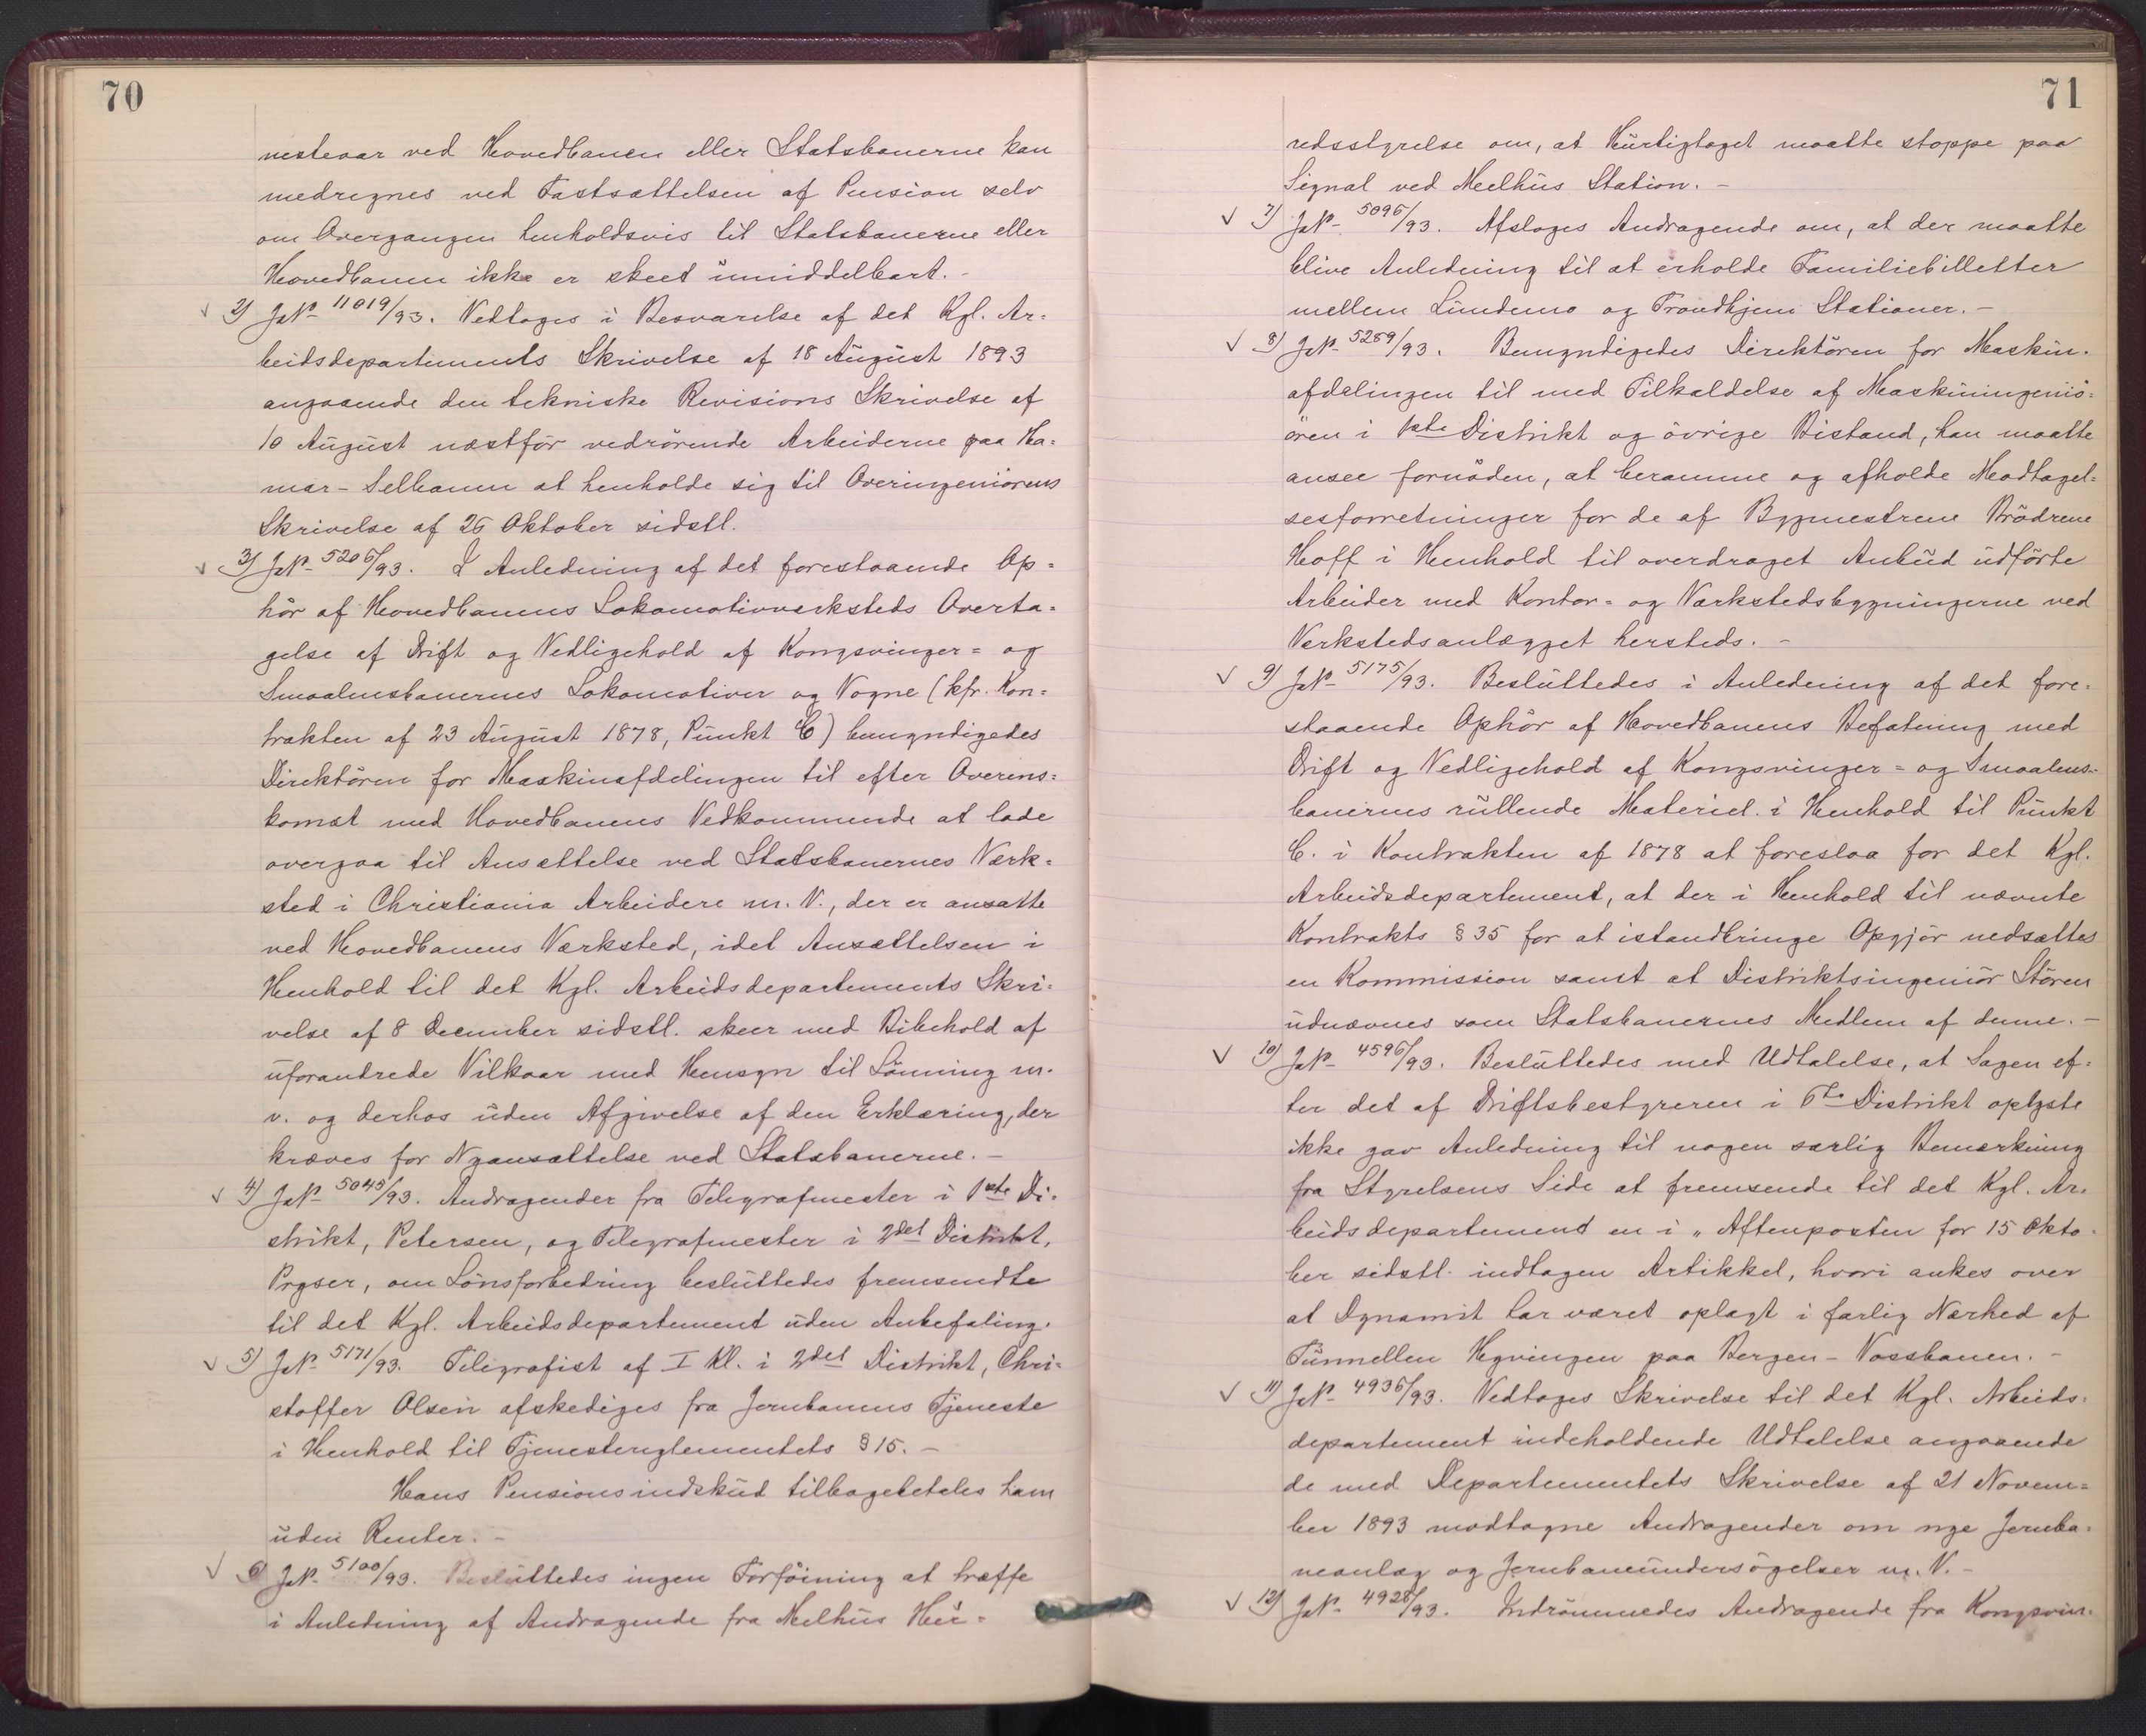 70
nesteaar ved Hovedbanen eller Statsbanerne kan
medregnes ved Fastsættelsen af Pension selv
om Overgangen henholdsvis til Statsbanerne eller
Hovedbanen ikke er skeet umiddelbart. -
2) JNo 11019/93. Vedtoges i Besvarelse af det Kgl. Ar=
beidsdepartements Skrivelse af 18 August 1893
angaaende den tekniske Revisions Skrivelse af
10 August næstför vedrörende Arbeiderne paa Ha=
mar - Selbanen at henholde sig til Overingeniörens
Skrivelse af 26 Oktober sidstl.
3) JNo 5206/93. I Anledning af det forestaaende Op=
hör af Hovedbanens Lokomotivverksteds Overta=
gelse af Drift og Vedligehold af Kongsvinger= og
Smaalensbanernes Lokomotiver og Vogne (kfr. Kon=
trakten af 23 August 1878, Punkt C) bemyndigedes
Direktören for Maskinafdelingen til efter Overens=
komst med Hovedbanens Vedkommende at lade
overgaa til Ansættelse ved Statsbanernes Værk=
sted i Christiania Arbeidere m. V., der er ansatte
ved Hovedbanens Værksted, idet Ansættelsen i
Henhold til det Kgl. Arbeidsdepartements Skri=
velse af 8 December sidstl. skeer med Bibehold af
uforandrede Vilkaar med Hensyn til Lönning m.
v. og derhos uden Afgivelse af den Erklæring, der
kræves for Nyansættelse ved Statsbanerne. -
4) JNo 5045/93. Andragender fra Telegrafmester i 1ste Di=
strikt, Petersen, og Telegrafmester i 2det Distrikt,
Pryser, om Lönsforbedring besluttedes fremsendte
til det Kgl. Arbeidsdepartement uden Anbefaling.
5) JNo 5171/93. Telegrafist af I Kl. i 2det Distrikt, Chri=
stoffer Olsen afskediges fra Jernbanens Tjeneste
i Henhold til Tjenestereglementets § 15. -
Hans Pensionsindskud tilbagebetales ham
uden Renter. -
6) JNo 5100/93. Besluttedes ingen Forföining at træffe
i Anledning af Andragende fra Melhus Her=
71
redsstyrelse om, at Hurtigtoget maatte stoppe paa
Signal ved Meelhus Station. -
7) JNo 5096/93. Afsloges Andragende om, at der maatte
blive Anledning til at erholde Familiebilletter
mellem Lundemo og Trondhjem Stationer. -
8) JNo 5289/93. Bemyndigedes Direktören for Maskin=
afdelingen til med Tilkaldelse af Maskiningeniö=
ören i 1ste Distrikt og övrige Bistand, han maatte
ansee fornöden, at beramme og afholde Modtagel=
sesforretninger for de af Bygmestrene Brödrene
Hoff i Henhold til overdraget Anbud udförte
Arbeider med Kontor= og Værkstedsbygningerne ved
Verkstedsanlægget hersteds. -
9) JNo 5175/93. Besluttedes i Anledning af det fore=
staaende Ophör af Hovedbanens Befatning med
Drift og Vedligehold af Kongsvinger= og Smaalens=
banernes rullende Materiel i Henhold til Punkt
C. i Kontrakten af 1878 at foreslaa for det Kgl.
Arbeidsdepartement, at der i Henhold til nævnte
Kontrakts § 35 for at istandbringe Opgjör nedsættes
en Kommission samt at Distriktsingeniör Stören
udnævnes som Statsbanernes Medlem af denne. -
10) JNo 4596/93. Besluttedes med Udtalelse, at Sagen ef=
ter det af Driftsbestyreren i 6te Distrikt oplyste
ikke gav Anledning til nogen særlig Bemærkning
fra Styrelsens Side at fremsende til det Kgl. Ar=
beidsdepartement en i „Aftenposten for 15 Okto=
ber sidstl. indtagen Artikkel, hvori ankes over
at Dynamit har været oplagt i farlig Nærhed af
Tunnellen Hyvingen paa Bergen - Vossbanen. -
11) JNo 4936/93. Vedtoges Skrivelse til det Kgl. Arbeids=
departement indeholdende Udtalelse angaaende
de med Departementets Skrivelse af 21 Novem=
ber 1893 modtagne Andragender om nye Jernba=
neanlæg og Jernbaneundersögelser m. V. -
12) JNo 4928/93. Indrömmedes Andragende fra Kongsvin=